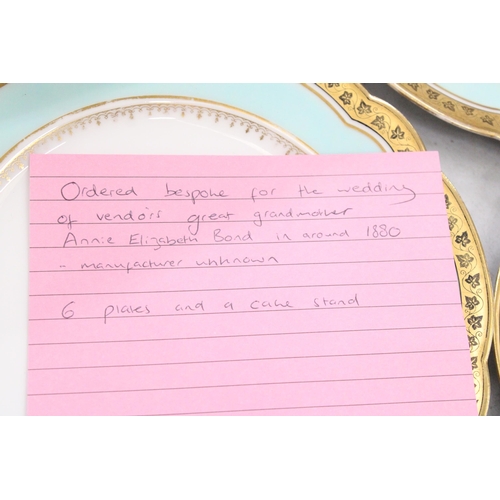 Ordered bespoke for the wedding
of vendors great grandmother
Annie Elizabeth Bond in around 1880
- manufacturer unknown
6 plates and a cake stand